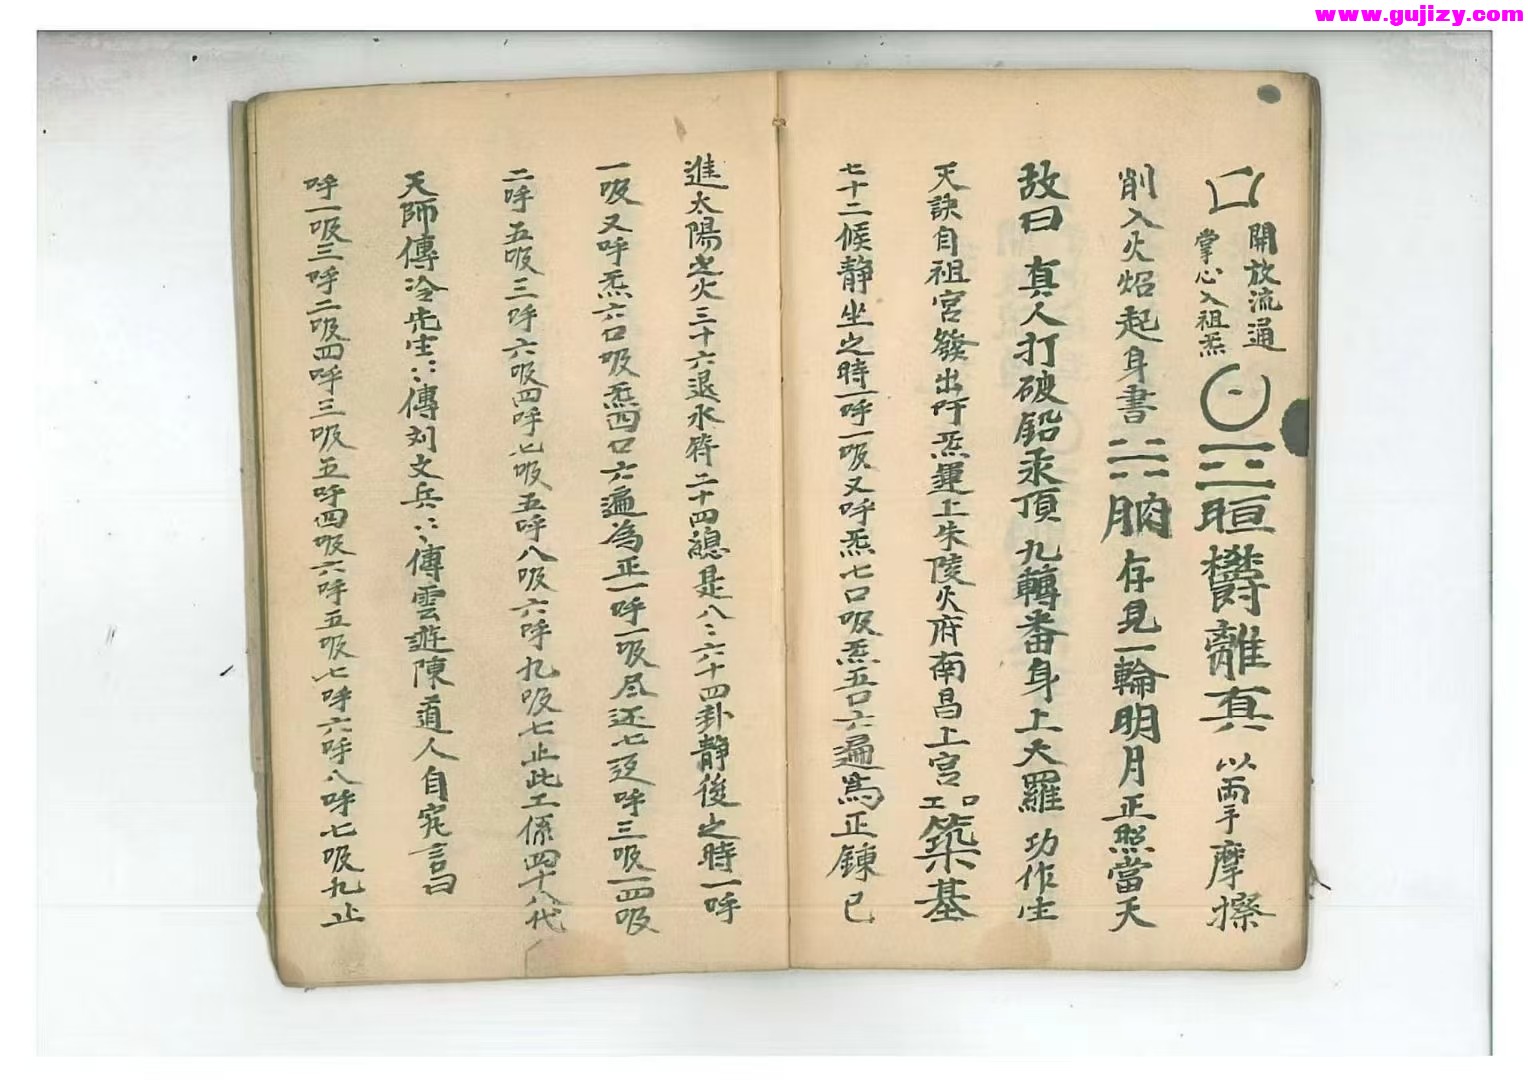 www.gujizy.com
口 開放流通 掌心入祖炁 三 晅 欝離真 以兩手摩擦
削入火焰起身書 存見一輪明月正照當天
故曰 真人打破鉛汞頂 九轉番身上大羅 功作生
天訣自祖宮發出吁炁運上朱陵火府南昌上宮 工口 築基
七十二候靜坐之時一呼一吸又呼炁七口吸炁五口六遍為正鍊已
進太陽之火三十六退水符二十四總是八：六十四卦靜後之時一呼
一吸又呼炁六口吸炁四口六遍為正一呼一吸尽还七返呼三吸一四吸
二呼五吸三呼六吸四呼七吸五呼八吸六呼九吸七止此工係四十八代
天師傳冷先生：：傳刘文兵：：傳雲遊陳道人自究言曰
呼一吸三呼二吸四呼三吸五呼四吸六呼五吸七呼六呼八呼七吸九止